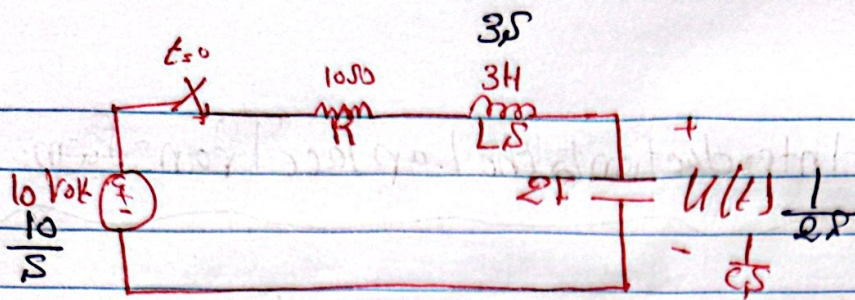 3S
t=0
10Ω 3H
R LS
+
10 Volt
10/S
2F
U(t)
1/2S
-
1/CS